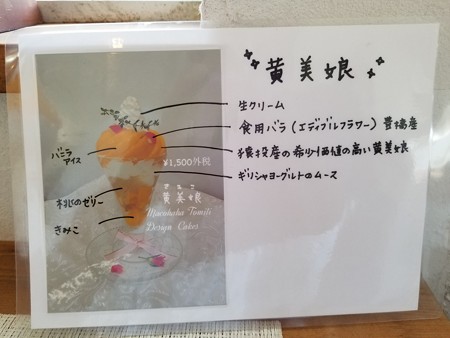 黄美娘
生クリーム
食用バラ(エディブルフラワー)豊橋産
猿投産の希少価値の高い黄美娘
ギリシャヨーグルトのムース
バニラ
アイス
桃のゼリー
きみこ
¥1,500外税
きみこ
黄美娘
Design Cakes